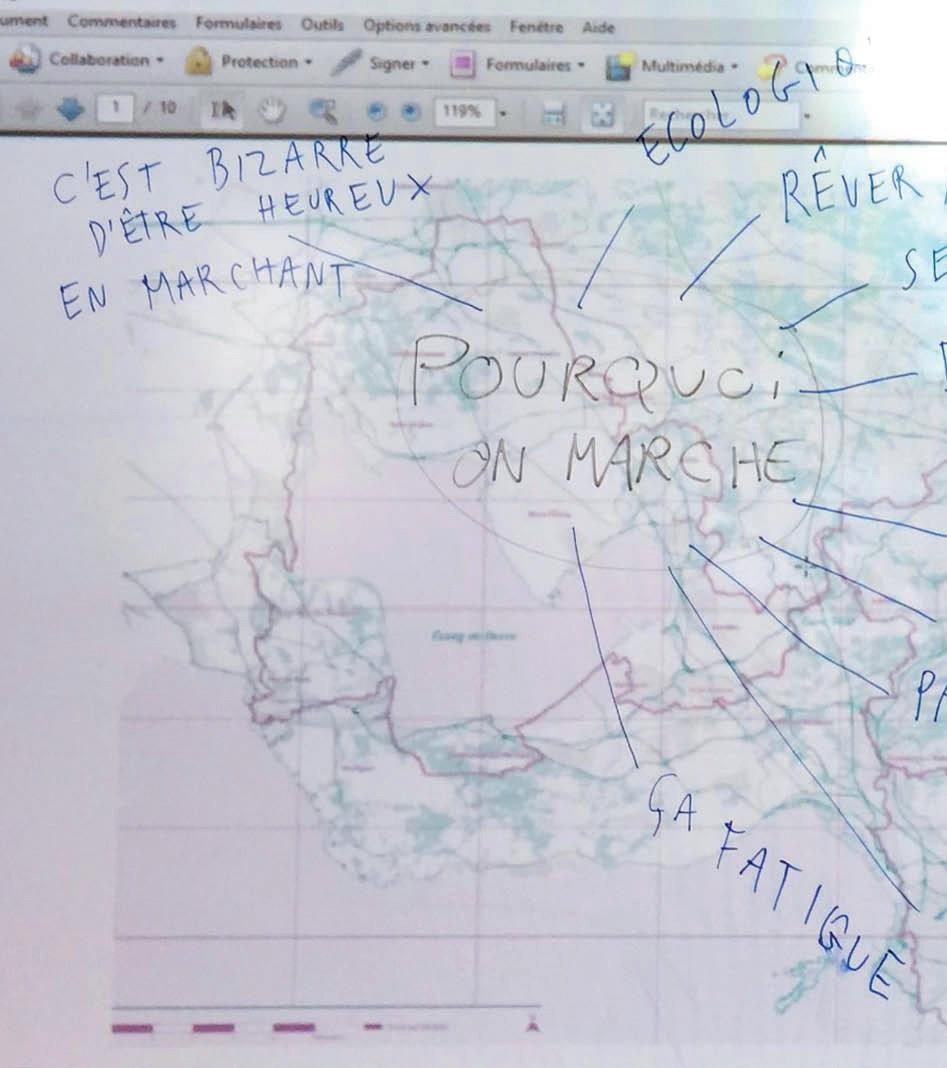 Commentaires Formulaires Outils Options avancées Fenêtre Aide
Collaboration Protection Signer Formulaires Multimédia
1 / 10 119%
C'EST BIZARRE
D'ÊTRE HEUREUX
EN MARCHANT
ECOLOGI
RÊVER
SE
POURQUOI
ON MARCHE
PA
ÇA FATIGUE